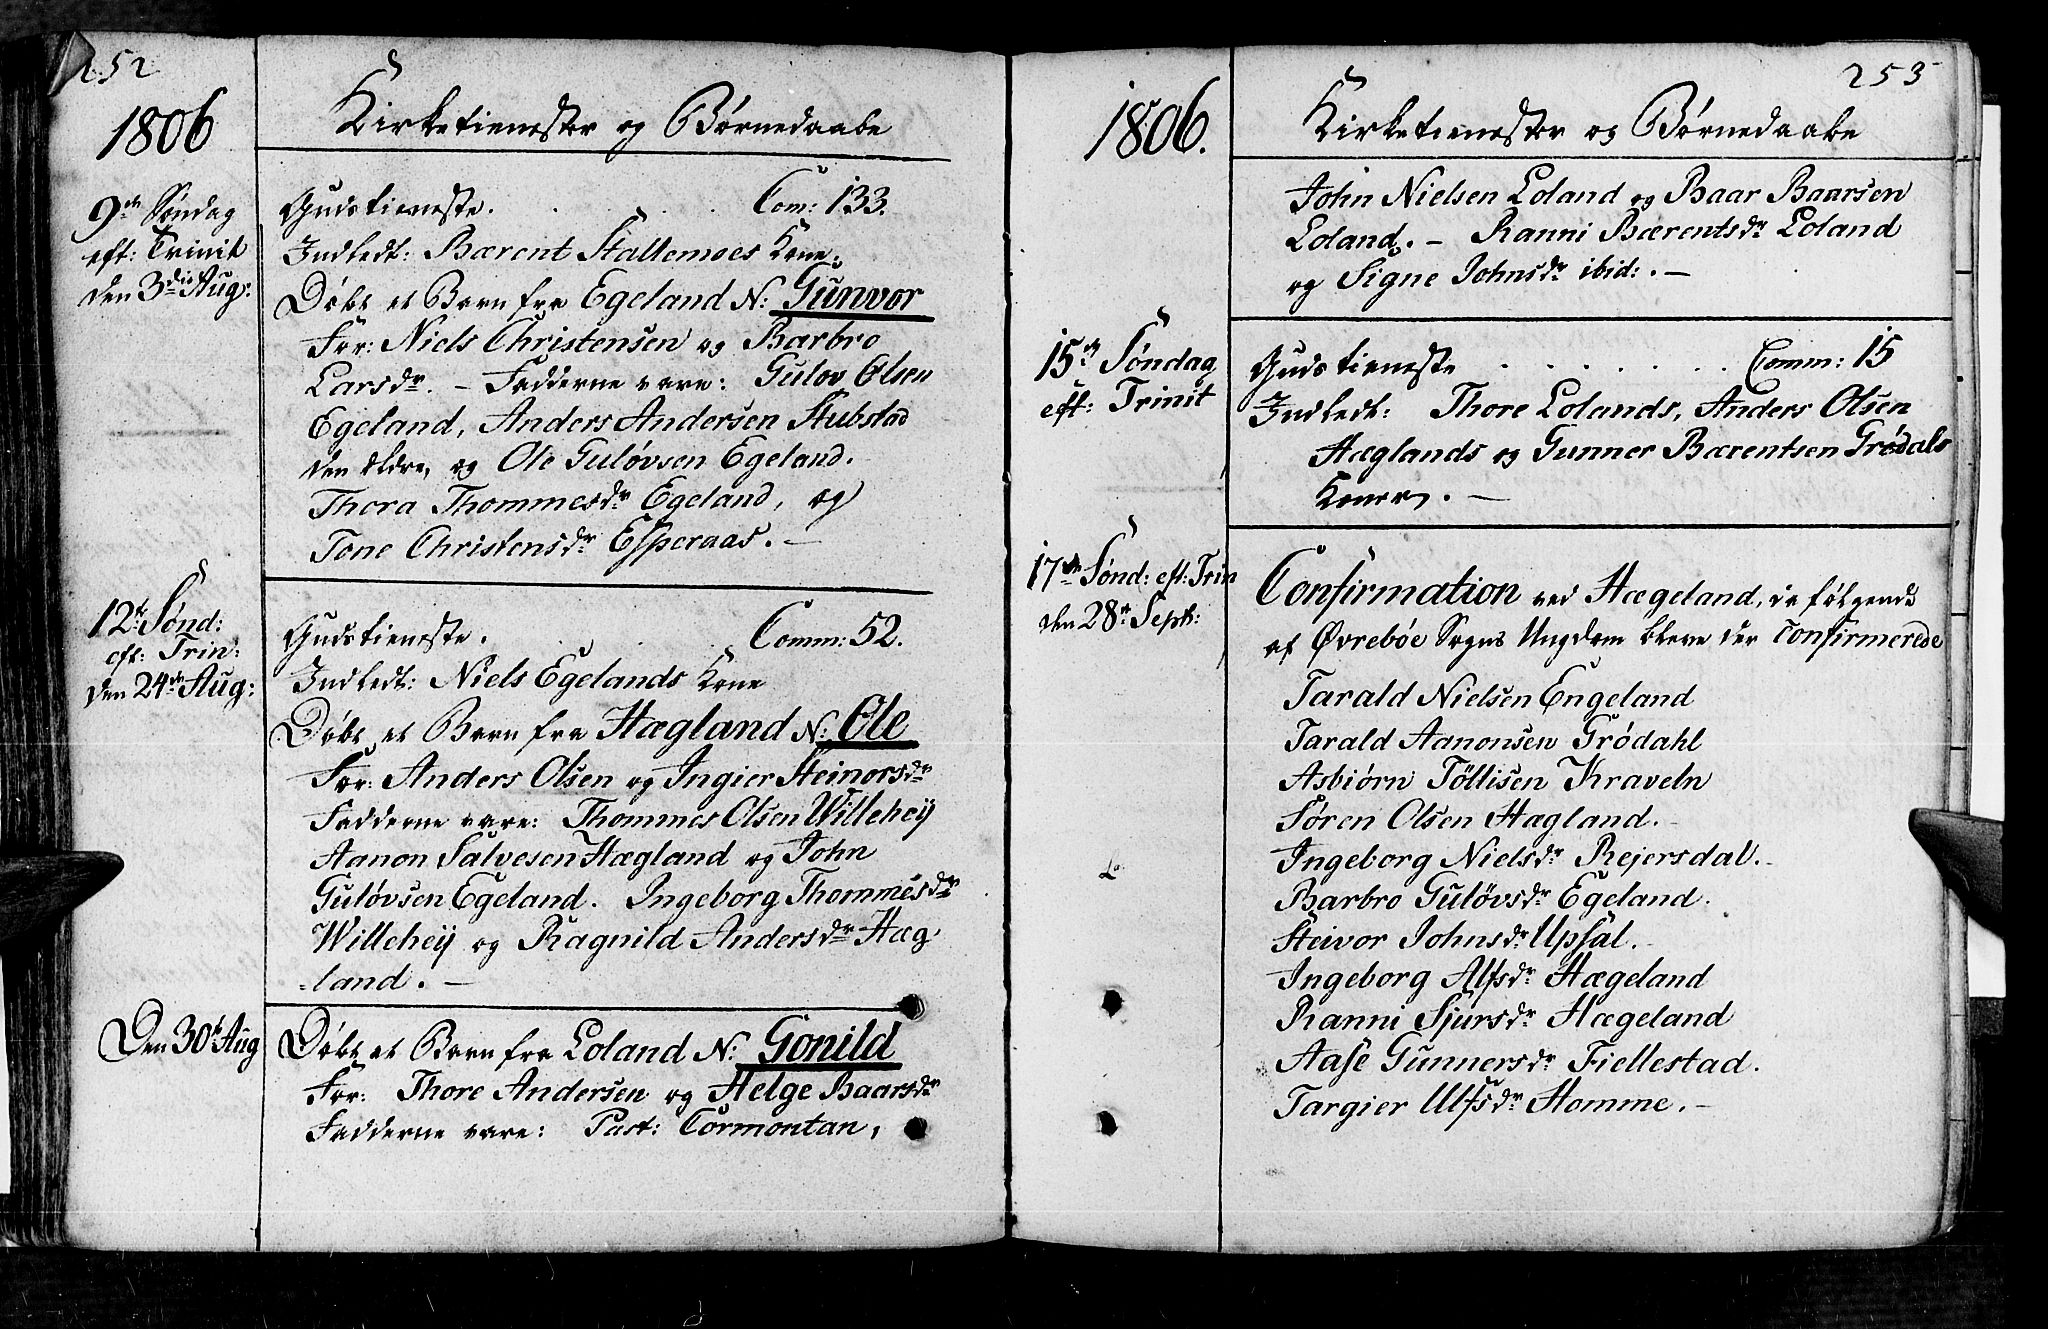 252
1806
Kirketienester og Børnedaabe
9de Søndag
eft: Trinit
den 3die Aug:
Gudstieneste. Com: 133.
Indledt: Bærent Stallemoes Kone.
Døbt et Barn fra Egeland N: Gunvor
For: Niels Christensen og Barbro
Larsdr. – Fadderne vare: Gulov Olsen
Egeland, Anders Andersen Stubstad
den ældre, og Ole Guløvsen Egeland.
Thora Thommesdr Egeland, og
Tone Christensdr Esperaas. –
12te Sønd:
eft: Trin:
den 24de Aug:
Gudstieneste. Comm: 52.
Indledt: Niels Egelands Kone
Døbt et Barn fra Hægland N: Ole
For: Anders Olsen og Ingier Steinorsdr
Fadderne vare: Thommes Olsen Willeheij
Aanon Salvesen Hægland og John
Guløvsen Egeland. Ingeborg Thommesdr
Willeheij og Ragnild Andersdr Hæg
-land. –
Den 30te Aug
Døbt et Barn fra Loland N: Gonild
For: Thore Andersen og Helge Baarsdr
Fadderne vare: Past: Cormontan,
253
1806.
Kirketienester og Børnedaabe
John Nielsen Loland og Baar Baarsen
Loland. – Ranni Bærentsdr Loland
og Signe Johnsdr ibid: . –
15de Søndag
eft: Trinit
Gudstieneste Comm: 15
Indledt: Thore Lolands, Anders Olsen
Hæglands og Gunner Bærentsen Grødals
Koner. –
17de Sønd: eft: Trin
den 28de Sept:
Confirmation ved Hægeland, da følgende
af Øvrebøe Sogns Ungdom bleve der Confirmerede
Tarald Nielsen Engeland
Tarald Aanonsen Grødahl
Asbiørn Tøllisen Kraveln
Søren Olsen Hægland.
Ingeborg Nielsdr Rejersdal.
Barbro Guløvsdr Egeland.
Steivor Johnsdr Upsal.
Ingeborg Alfsdr Hægeland
Ranni Sjursdr Hægeland
Aase Gunnersdr Fiellestad.
Targier Ulfsdr Homme. –